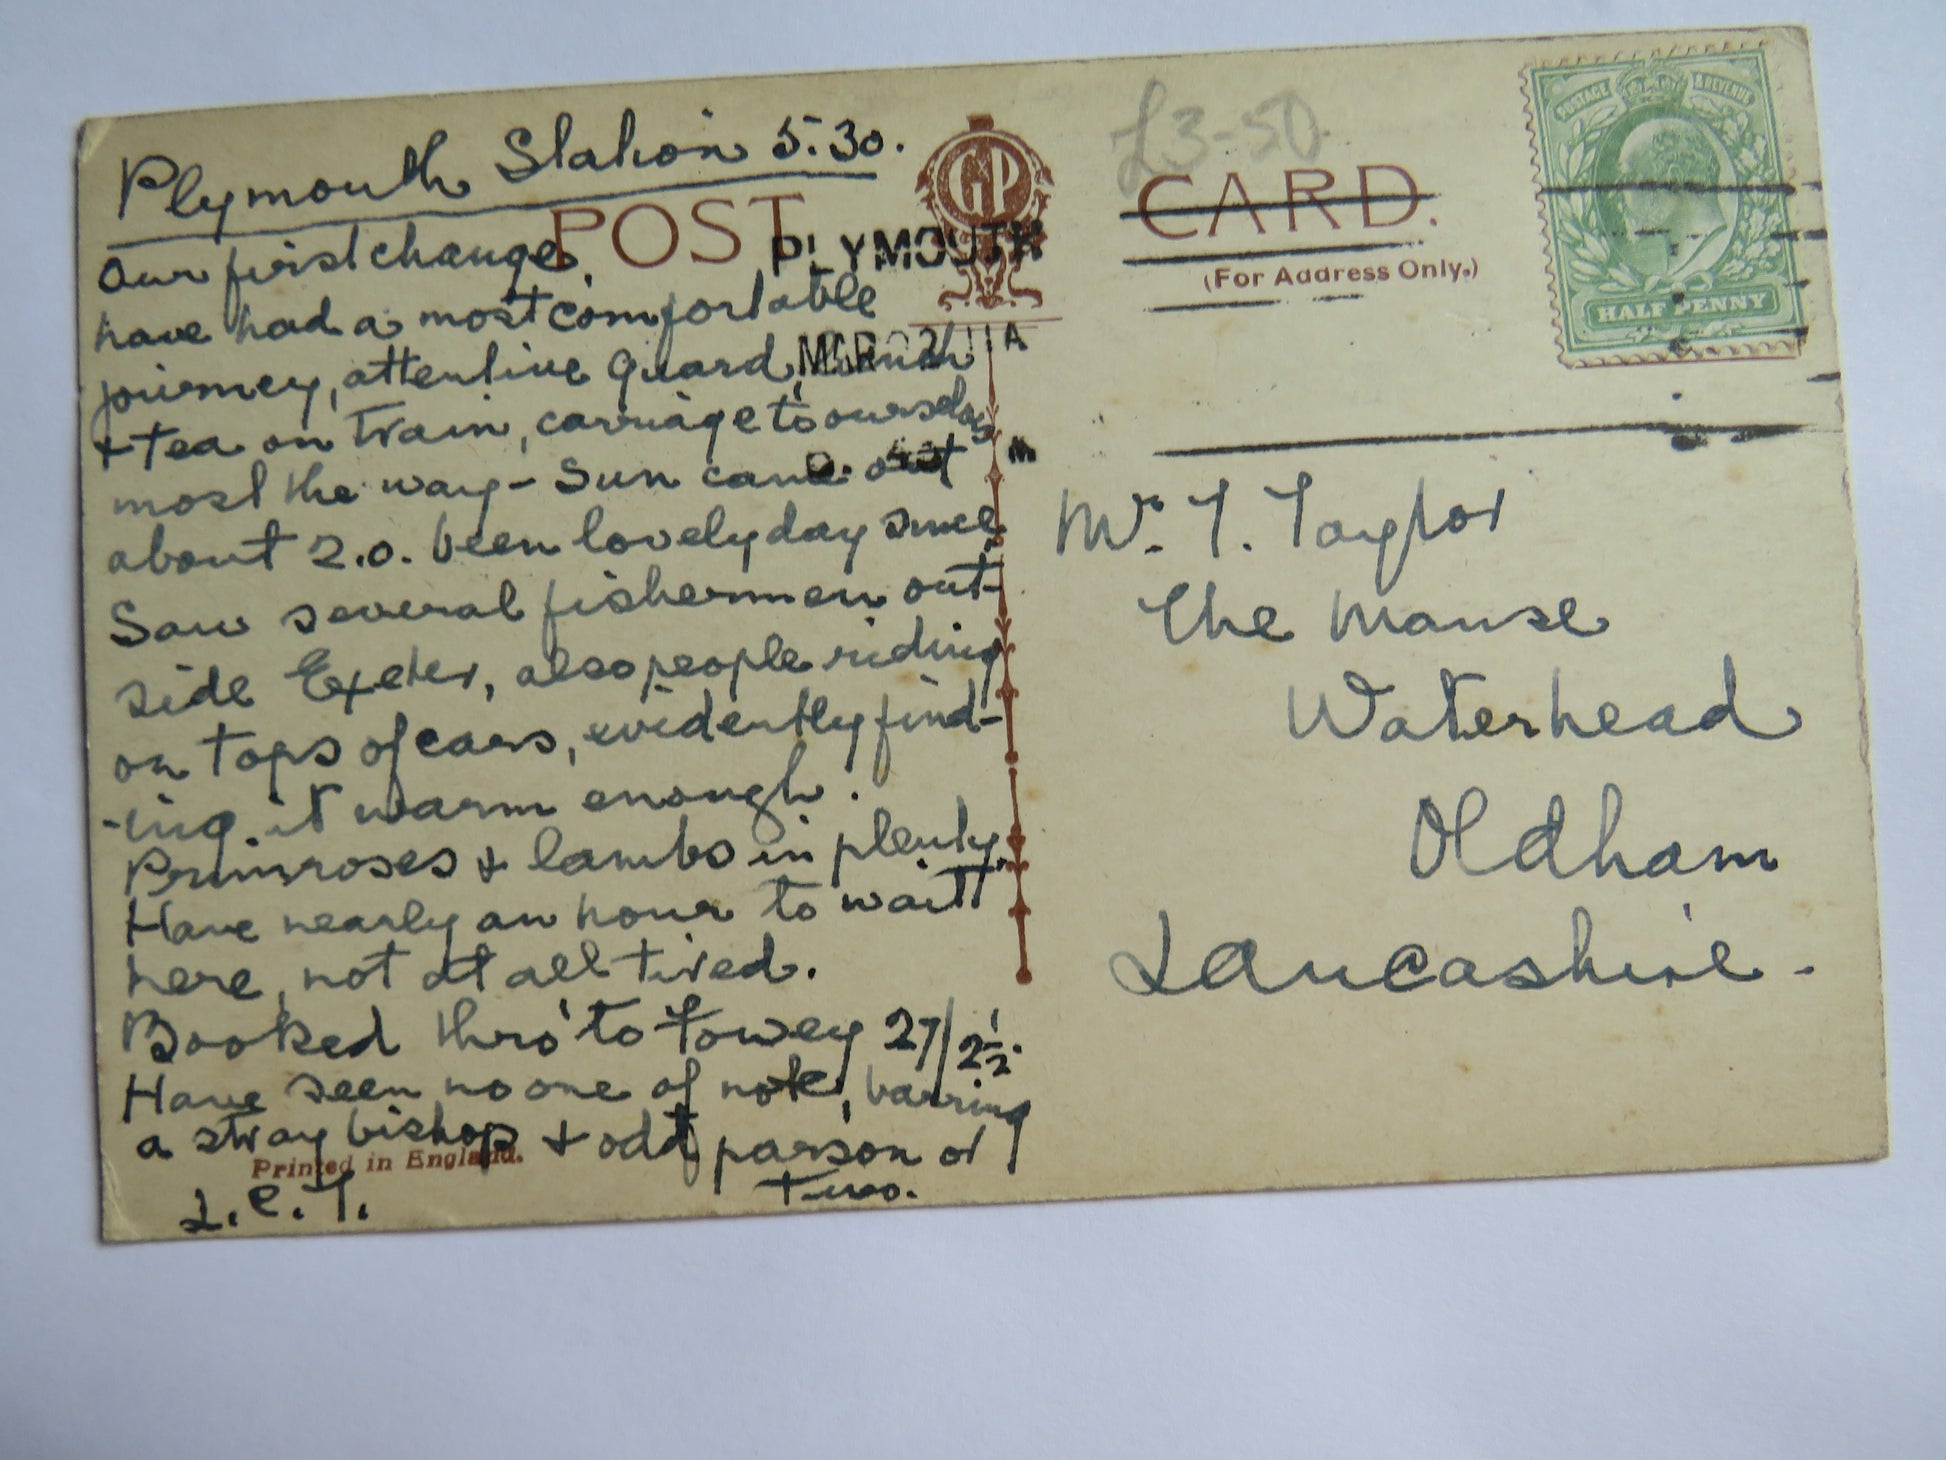 Plymouth Station 5.30.
Our first change.
have had a most comfortable
journey, attentive guard, lunch
+ tea on train, carriage to ourselves
most the way - Sun came out
about 2.0. been lovely day since
Saw several fishermen out-
side Exeter, also people riding
on tops of cars, evidently find-
-ing it warm enough.
Primroses + lambs in plenty.
Have nearly an hour to wait
here, not at all tired.
Booked thro' to Fowey 27/2½.
Have seen no one of note, barring
a stray bishop + odd parson or
two.
L.C.T.
Printed in England.
POST CARD.
GP
(For Address Only.)
£3-50
PLYMOUTH
MAR 11A
POSTAGE & REVENUE
HALF PENNY
Mr. T. Taylor
The Manse
Waterhead
Oldham
Lancashire -